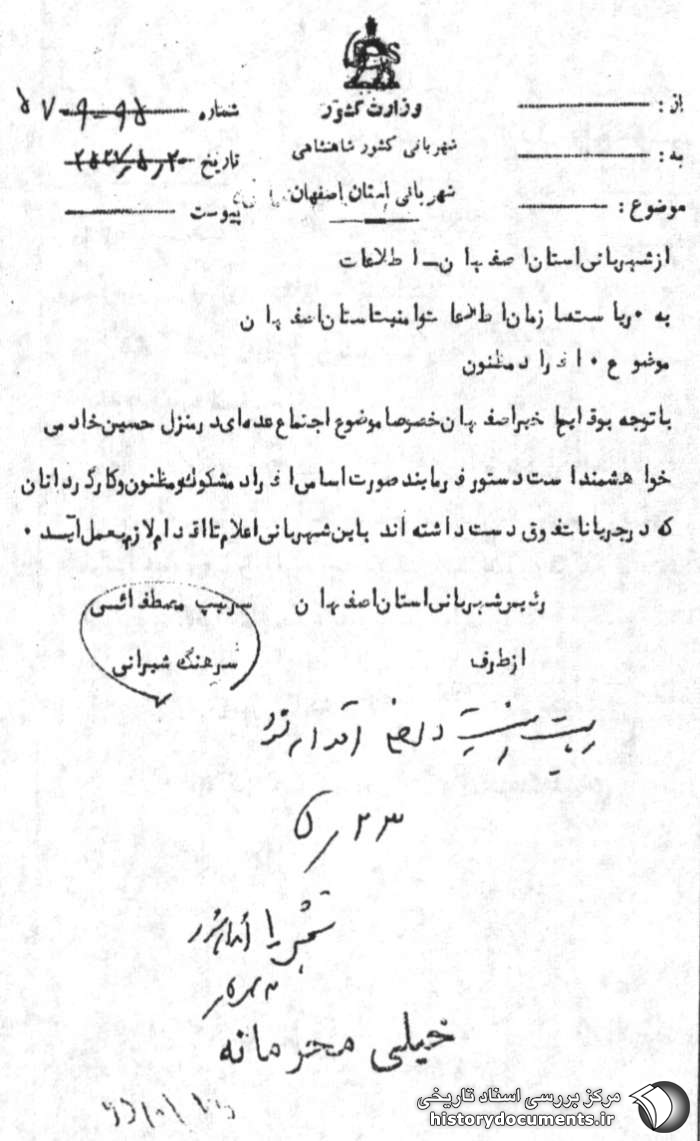 وزارت کشور
شهربانی کشور شاهنشاهی
شهربانی استان اصفهان
از :
به :
موضوع :
شماره
تاریخ ۲۵۳۷٫۵٫۲۰
پیوست
از شهربانی استان اصفهان ـ اطلاعات
به ۰ ریاست سازمان اطلاعات و امنیت استان اصفهان
موضوع ۰ افراد مظنون
با توجه بوقایع اخیر اصفهان خصوصا موضوع اجتماع عده‌ای در منزل حسین خادمی
خواهشمند است دستور فرمایند صورت اسامی افراد مشکوک و مظنون و کارگردانان
که در جریانات فوق دست داشته اند باین شهربانی اعلام تا اقدام لازم بعمل آید ۰
رئیس شهربانی استان اصفهان سرتیپ مصطفائی
از طرف سرهنگ شیرانی
اقدام شود
۲۳ ر ۵
خیلی محرمانه
مرکز بررسی اسناد تاریخی
historydocuments.ir